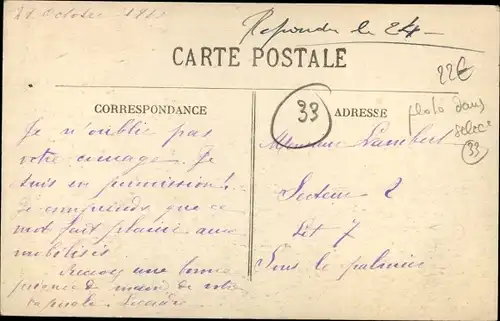 21 Octobre
Répondu le 24
CARTE POSTALE
22€
33
CORRESPONDANCE
ADRESSE
photo dans
33
Je n'oublie pas
votre Je
suis en permission!
Je comprends que ce
mot fait plaisir aux
mobilisés.
Recevez une bonne
poignée de mains de votre
Monsieur Lambert
Secteur 2
Lit 7
Sous le palmier